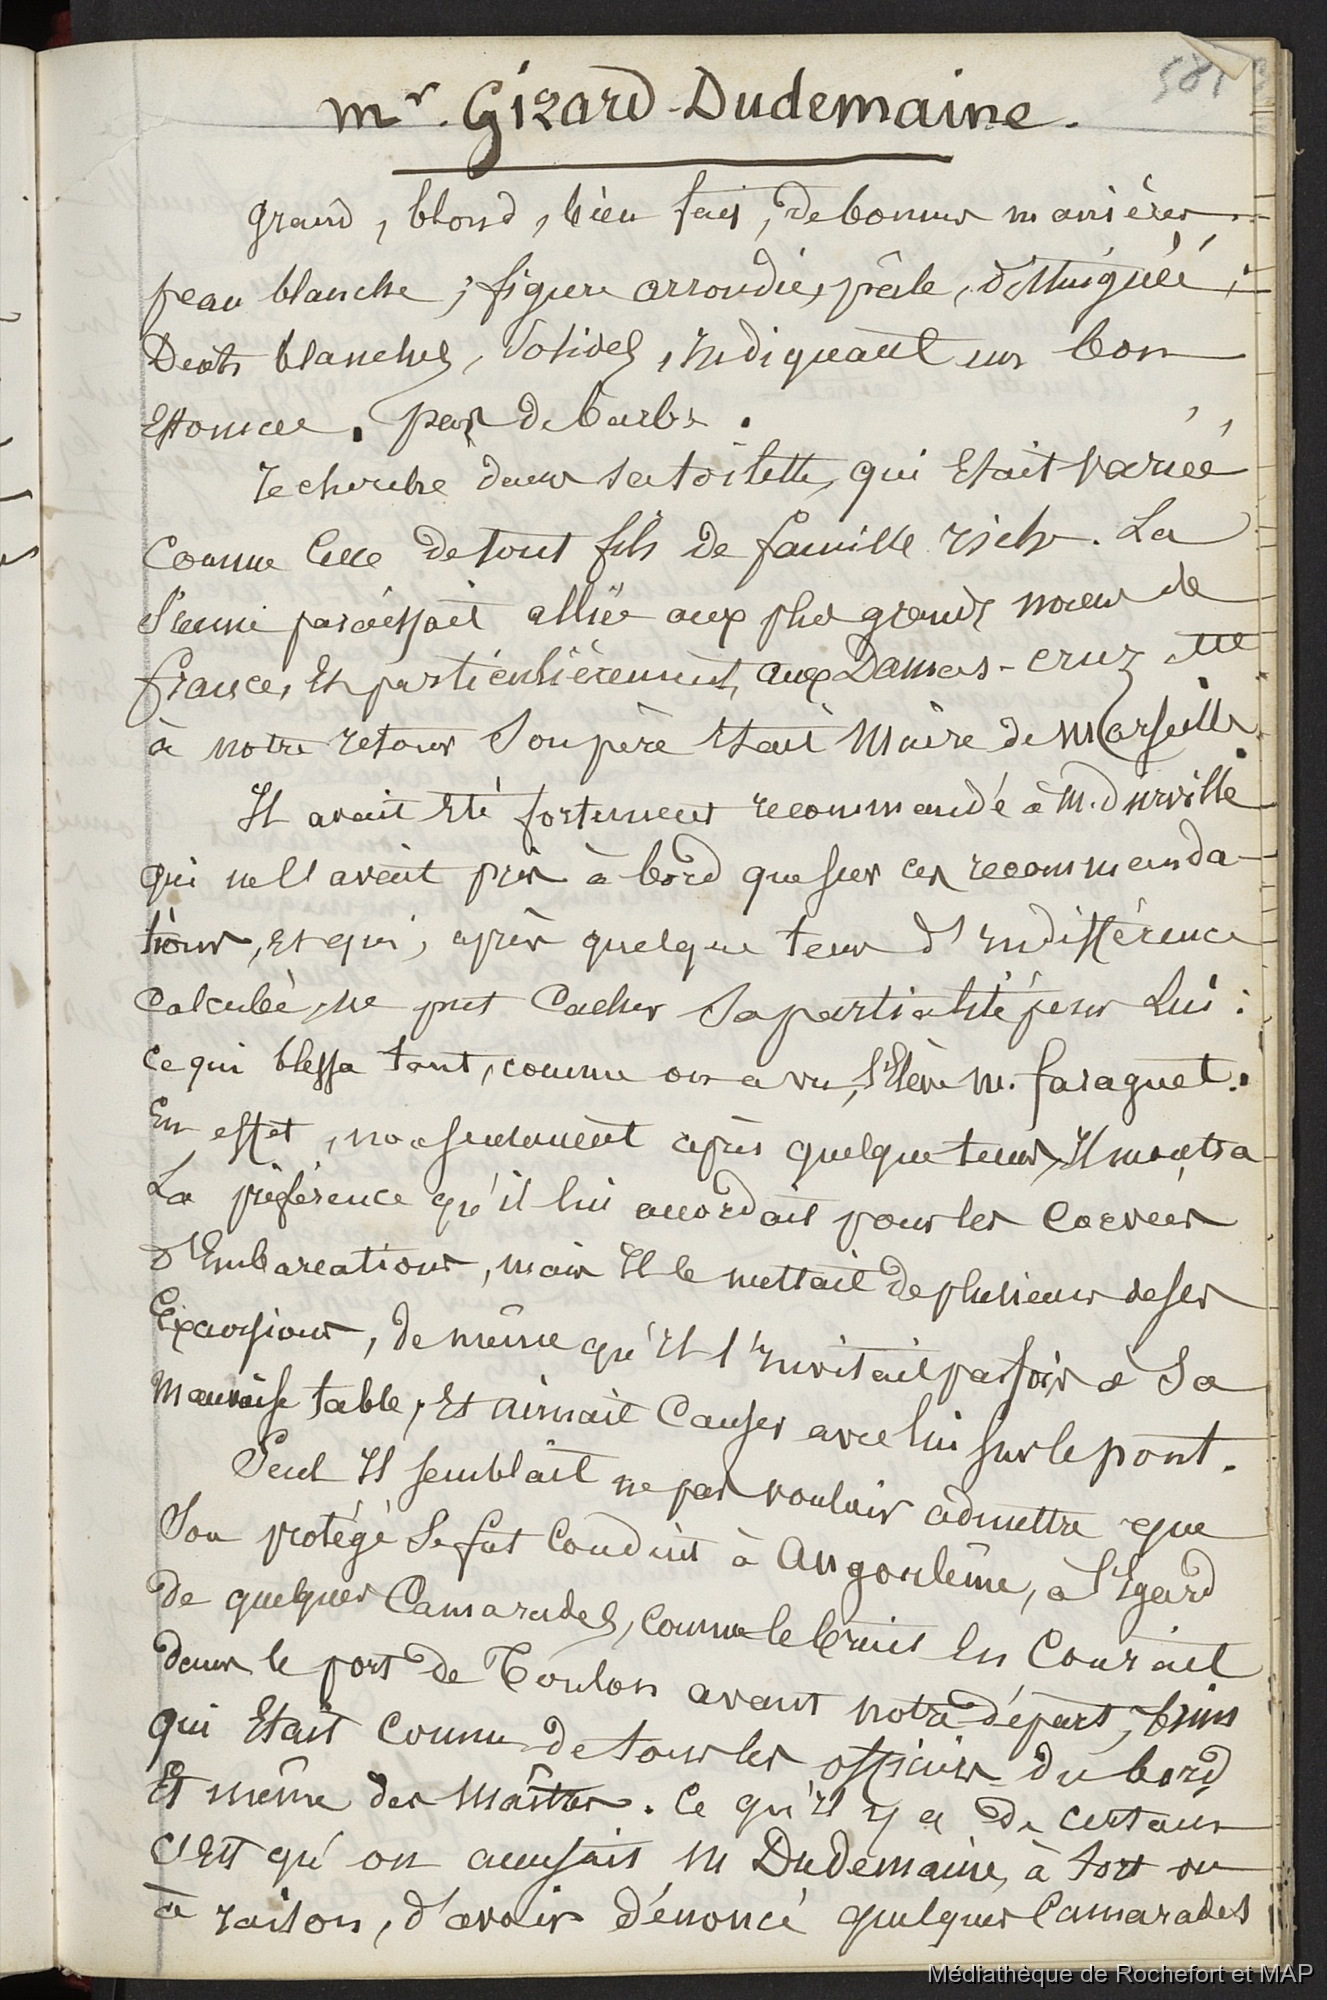 581
Mr. Gizard-Dudemaine.
grand, blond, bien fait, de bonnes manières.
peau blanche ; figure arrondie, pâle, distinguée ;
Dents blanches, solides, indiquant un bon
Estomac. pas de barbe.
recherché dans sa toilette, qui Etait variée
comme celle de tout fils de famille riche. La
sienne paraissait alliée aux plus grands noms de
france, Et particulièrement, aux Damas-cruz ette
à notre retour Son père Etait Maire de Marseille.
Il avait Eté fortement recommandé à M. durville
qui ne l'avait pris à bord que sur ces recommanda-
tions, Et qui, après quelque tems d'indifférence
calculée, ne put cacher Sa partialité pour Lui :
ce qui blessa tant, comme on a vu, l'Elève M. faraguet.
En effet, non seulement après quelque tems, Il montra
La préférence qu'il lui accordait pour les corvées
d'Embarcations, mais Il le mettait de plusieurs de ses
Excursions, de même qu'Il l'Invitait parfois à Sa
mauvaise table, Et aimait Causer avec lui sur le pont.
Seul Il semblait ne pas vouloir admettre que
Son protégé Se fut conduit à Angoulême, à l'Egard
de quelques Camarades, comme le bruit En Courait
dans le port de Toulon avant notre départ, bruit
qui Etait connu de tous les officiers du bord
Et même des Maîtres. Ce qu'Il y a de certain
c'Est qu'on accusait M Dudemaine, à tort ou
à raison, d'avoir dénoncé quelques Camarades
Médiathèque de Rochefort et MAP